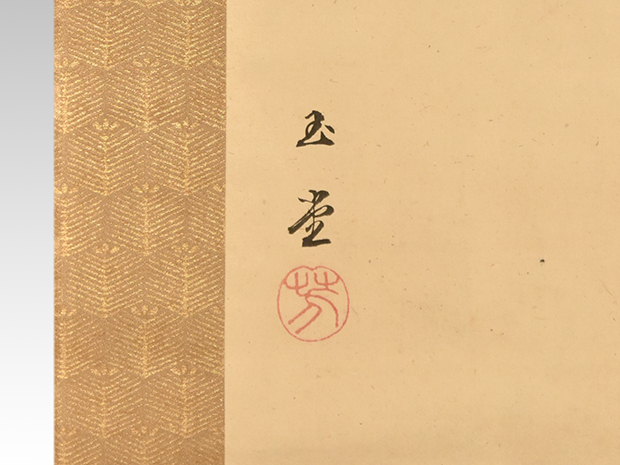 玉堂
芳